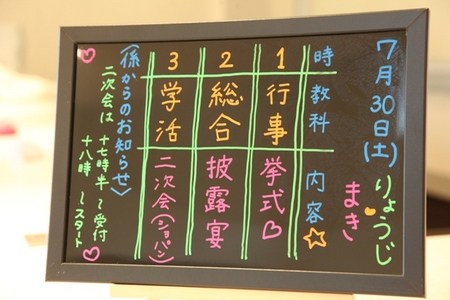 7月30日(土) りょうじ
まき
時 教科 内容☆
1 行事 挙式♡
2 総合 披露宴
3 学活 二次会(ショパン)
〈係からのお知らせ〉
二次会は 十七時半〜受付
十八時〜スタート